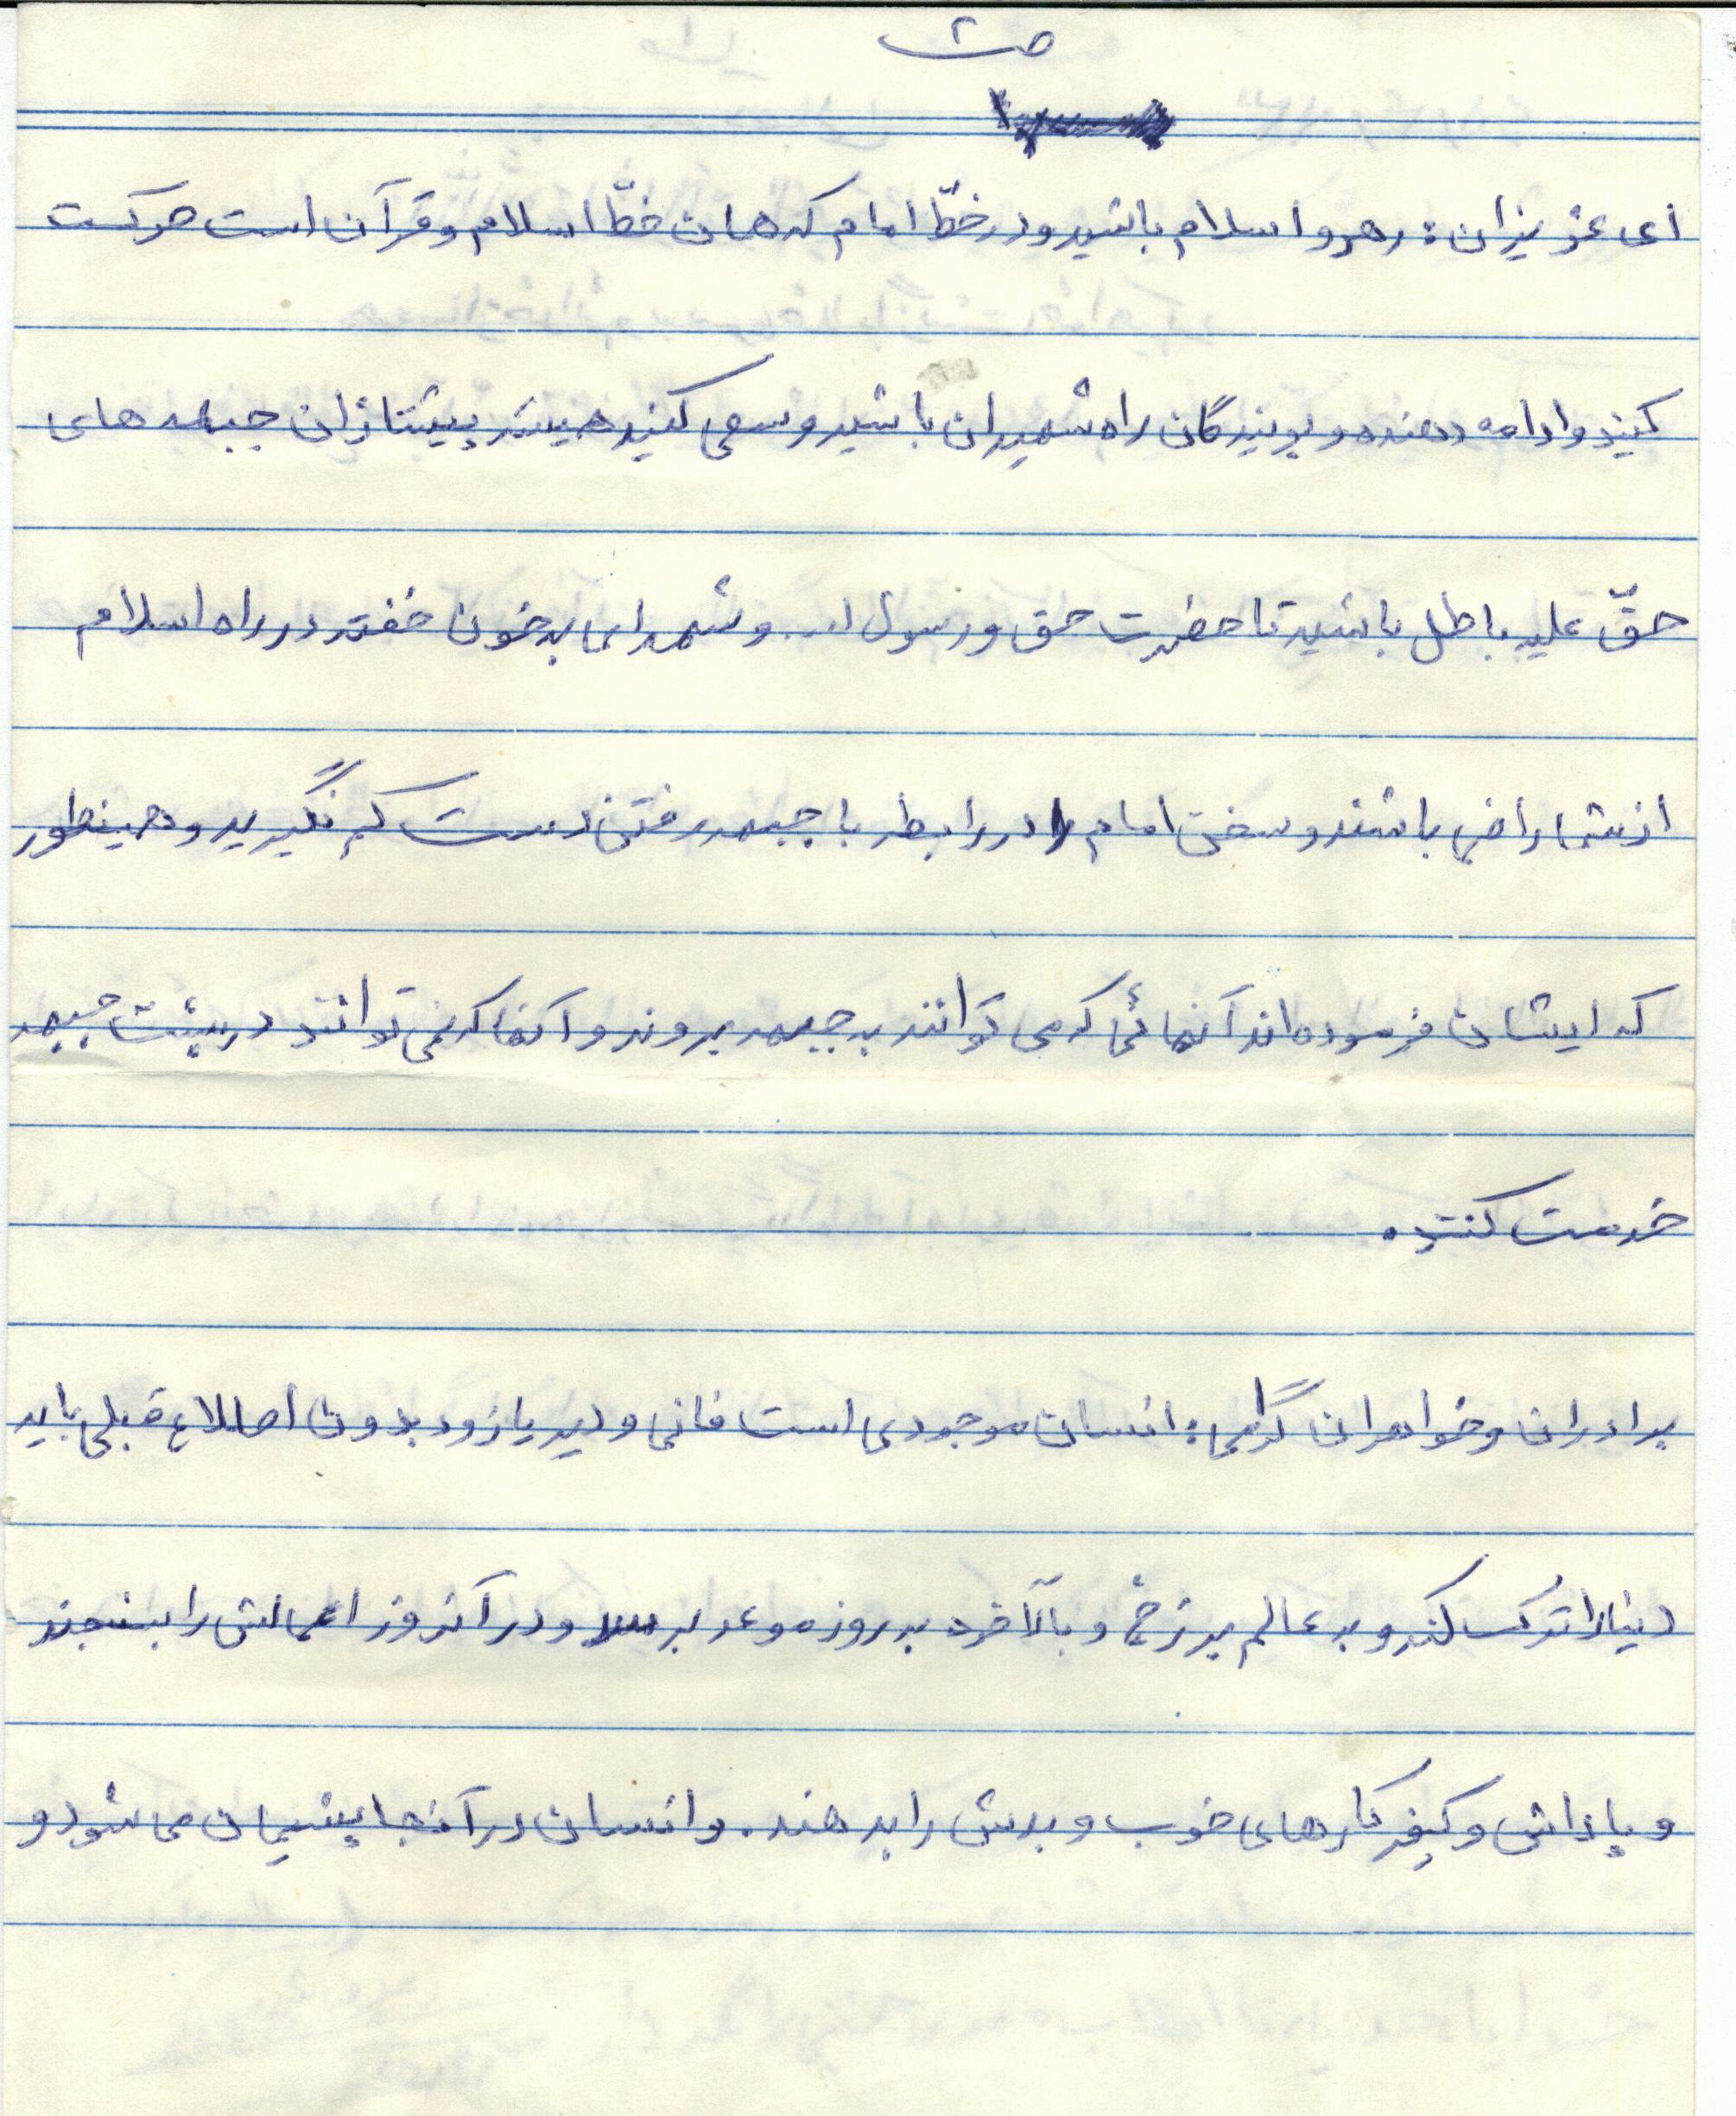 ص ۲
ای عزیزان: رهرو اسلام باشید و در خطّ امام که همان خطّ اسلام و قرآن است حرکت
کنید و ادامه دهنده و پویندگان راه شهیدان باشید و سعی کنید همیشه پیشتازان جبهه های
حقّ علیه باطل باشید تا حضرت حق و رسول ا... و شهدای به خون خفته در راه اسلام
از شما راضی باشند و سخن امام را در رابطه با جبهه رفتن دست کم نگیرید و همینطور
که ایشان فرموده اند آنهائی که می توانند به جبهه بروند و آنها که نمی توانند در پشت جبهه
خدمت کنند.
برادران و خواهران گرامی: انسان موجودی است فانی و دیر یا زود بدون اطلاع قبلی باید
دنیا را ترک کند و به عالم برزخ و بالآخره به روز موعد برسد و در آنروز اعمالش را بسنجند
و پاداش و کیفر کارهای خوب و بدش را بدهند. و انسان در آنجا پشیمان می شود و